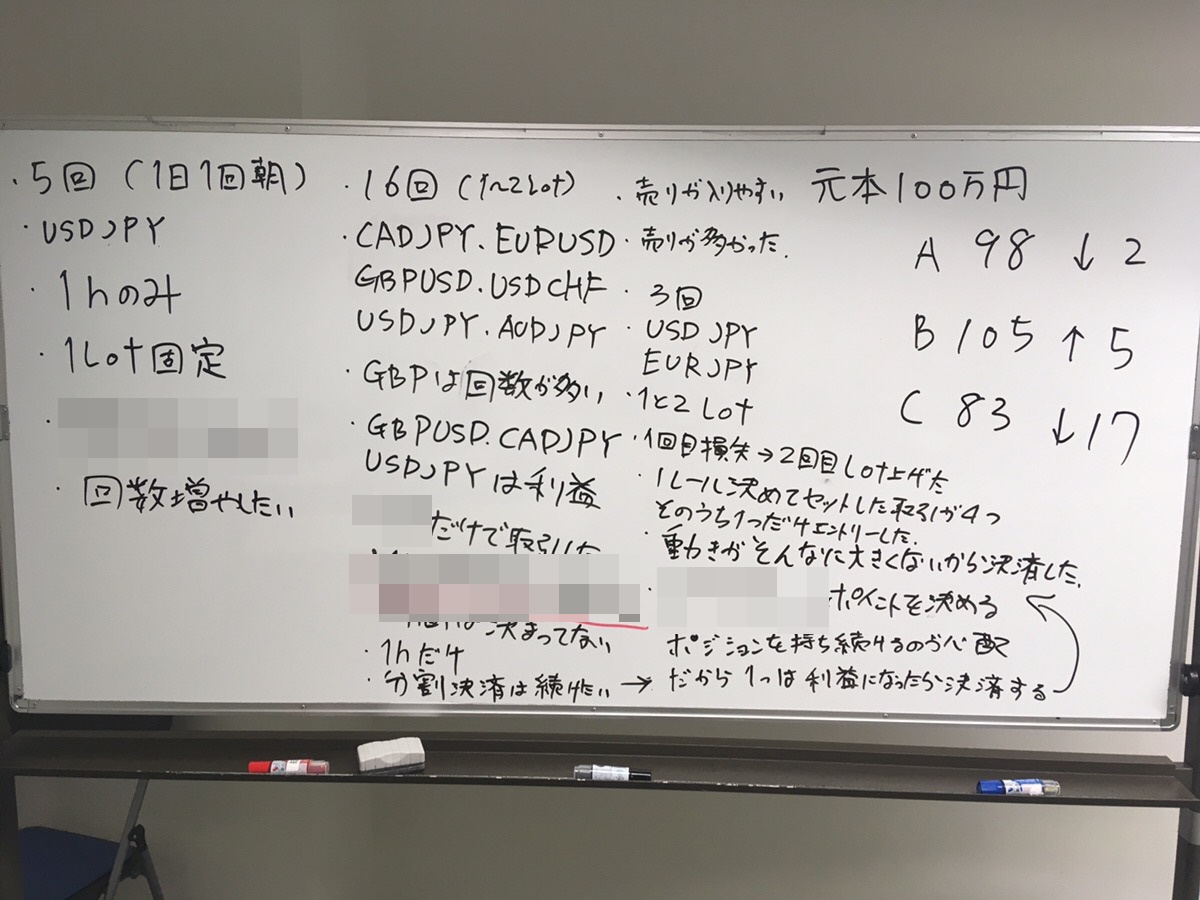 ・5回 (1日1回朝)
・USDJPY
・1hのみ
・1Lot固定
・
・回数増やしたい
・16回 (1〜2Lot)
・CADJPY.EURUSD
GBPUSD.USDCHF
USDJPY.AUDJPY
・GBPは回数が多い
・GBPUSD.CADJPY
USDJPYは利益
だけで取引した
は決まってない
・1hだけ
・分割決済は続けたい →
・売りが入りやすい
・売りが多かった.
・3回
・USDJPY
EURJPY
・1と2Lot
・1回目損失→2回目Lot上げた
・1ルール決めてセットした取引が4つ
そのうち1つだけエントリーした.
・動きがそんなに大きくないから決済した.
・ ポイントを決める
ポジションを持ち続けるのが心配
だから1つは利益になったら決済する
元本100万円
A 98 ↓ 2
B 105 ↑ 5
C 83 ↓17